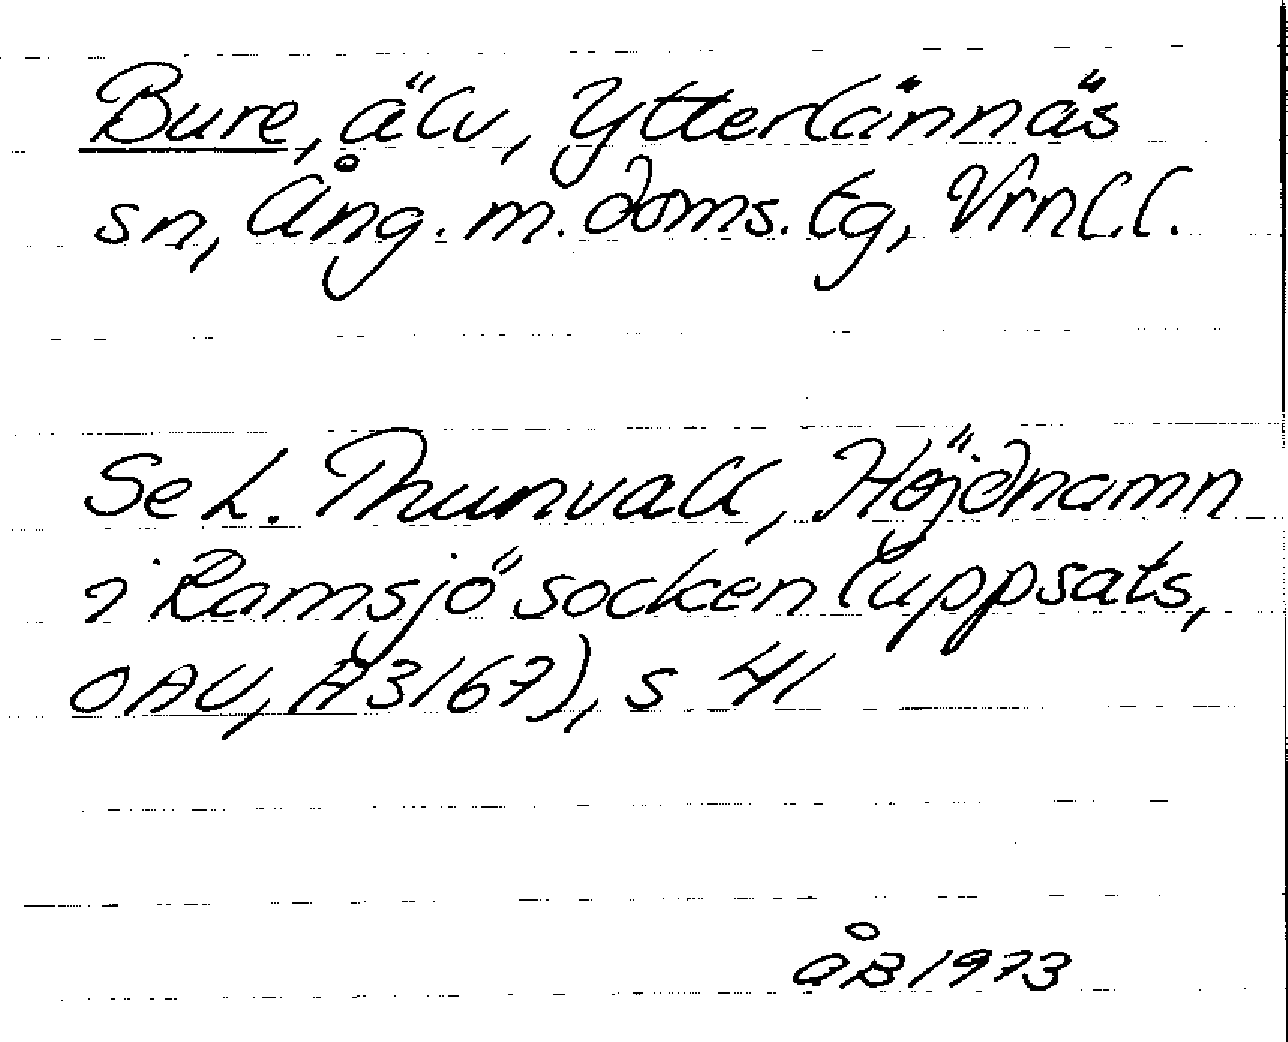 Bure, älv, Ytterlännäs
sn, Ång. m. doms. tg, Vrnl.l.
Se L. Thunvall, Höjdnamn
i Ramsjö socken (uppsats,
OAU, A3167), s 41
ÅB 1973